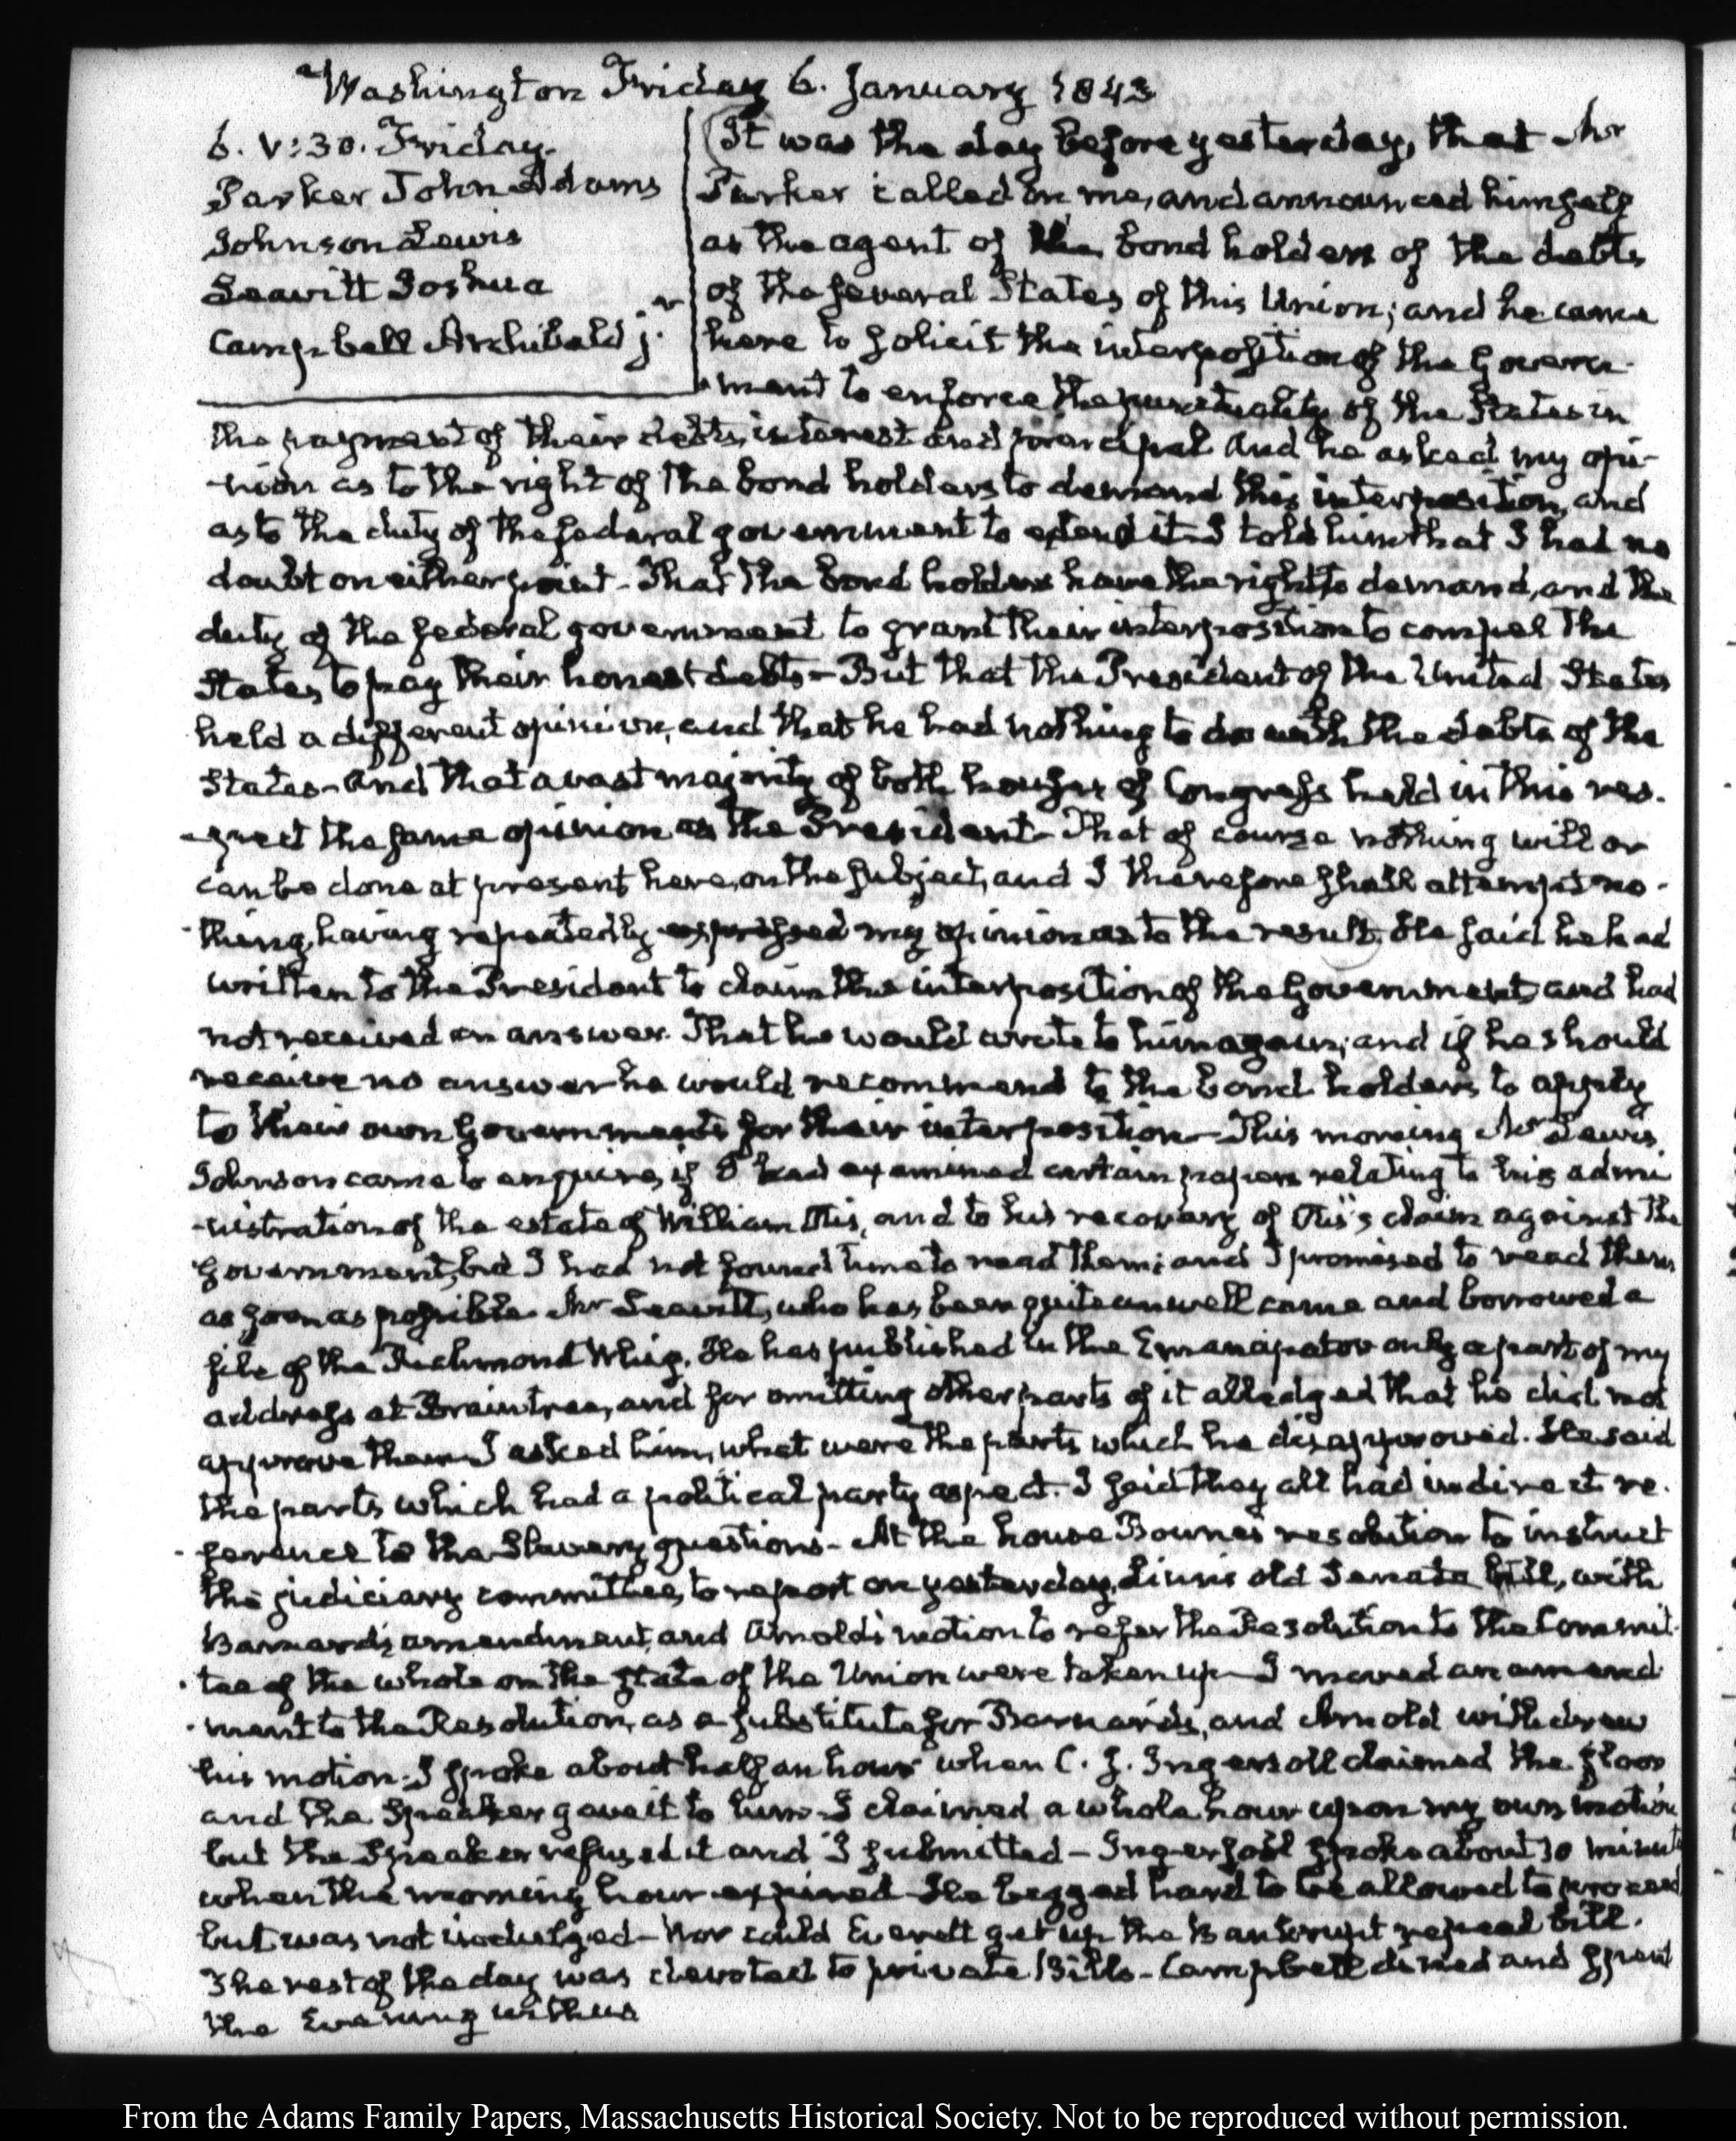 Washington Friday 6. January 1843
6. V:30. Friday.
Parker John Adams
Johnson Lewis
Leavitt Joshua
Campbell Archibald j.r
It was the day before yesterday, that Mr
Parker called on me, and announced himself
as the agent of the bond holders of the debts
of the several States of this Union; and he came
here to solicit the interposition of the Govern-
ment to enforce the punctuality of the States in
the payment of their debts, interest and principal and he asked my opi-
-nion as to the right of the bond holders to demand this interposition, and
as to the duty of the federal government to extend it. I told him that I had no
doubt on either point- That the bond holders have the right to demand, and the
duty of the federal government to grant their interposition to compel the
States to pay their honest debts- But that the President of the United States
held a different opinion, and that he had nothing to do with the debts of the
States- and that a vast majority of both houses of Congress held in this res-
-pect the same opinion as the President- That of course nothing will or
can be done at present here, on the subject, and I therefore shall attempt no-
-thing, having repeatedly expressed my opinion as to the result. He said he had
written to the President to claim the interposition of the Government and had
not received an answer. That he would write to him again; and if he should
receive no answer he would recommend to the bond holders to apply
to their own Governments for their interposition- This morning Mr Lewis
Johnson came to enquire, if I had examined certain papers relating to his admi
-nistration of the estate of William Otis, and to his recovery of Otis's claim against the
government, but I had not found time to read them; and I promised to read them
as soon as possible. Mr Leavitt, who has been quite unwell came and borrowed a
file of the Richmond Whig. He has published in the Emancipator only a part of my
address at Braintree, and for omitting other parts of it alledged that he did not
approve them. I asked him, what were the parts which he disapproved. He said
the parts which had a political party aspect. I said they all had indirect re-
-ference to the Slavery questions- At the house Bowne's resolution to instruct
the judiciary committee, to report on yesterday, Linn's old Senate bill, with
Barnard's amendment, and Arnold's motion to refer the Resolution to the Commit-
-tee of the whole on the state of the Union were taken up- I moved an amend
-ment to the Resolution, as a substitute for Barnard's, and Arnold withdrew
his motion- I spoke about half an hour when C. J. Ingersoll claimed the floor
and the Speaker gave it to him- I claimed a whole hour upon my own motion
but the Speaker refused it and I submitted- Ingersoll spoke about 10 minutes
when the morning hour expired- He begged hard to be allowed to proceed
but was not indulged- Nor could Everett get up the Bankrupt repeal bill.
The rest of the day was devoted to private Bills- Campbell dined and spent
the Evening with us
From the Adams Family Papers, Massachusetts Historical Society. Not to be reproduced without permission.